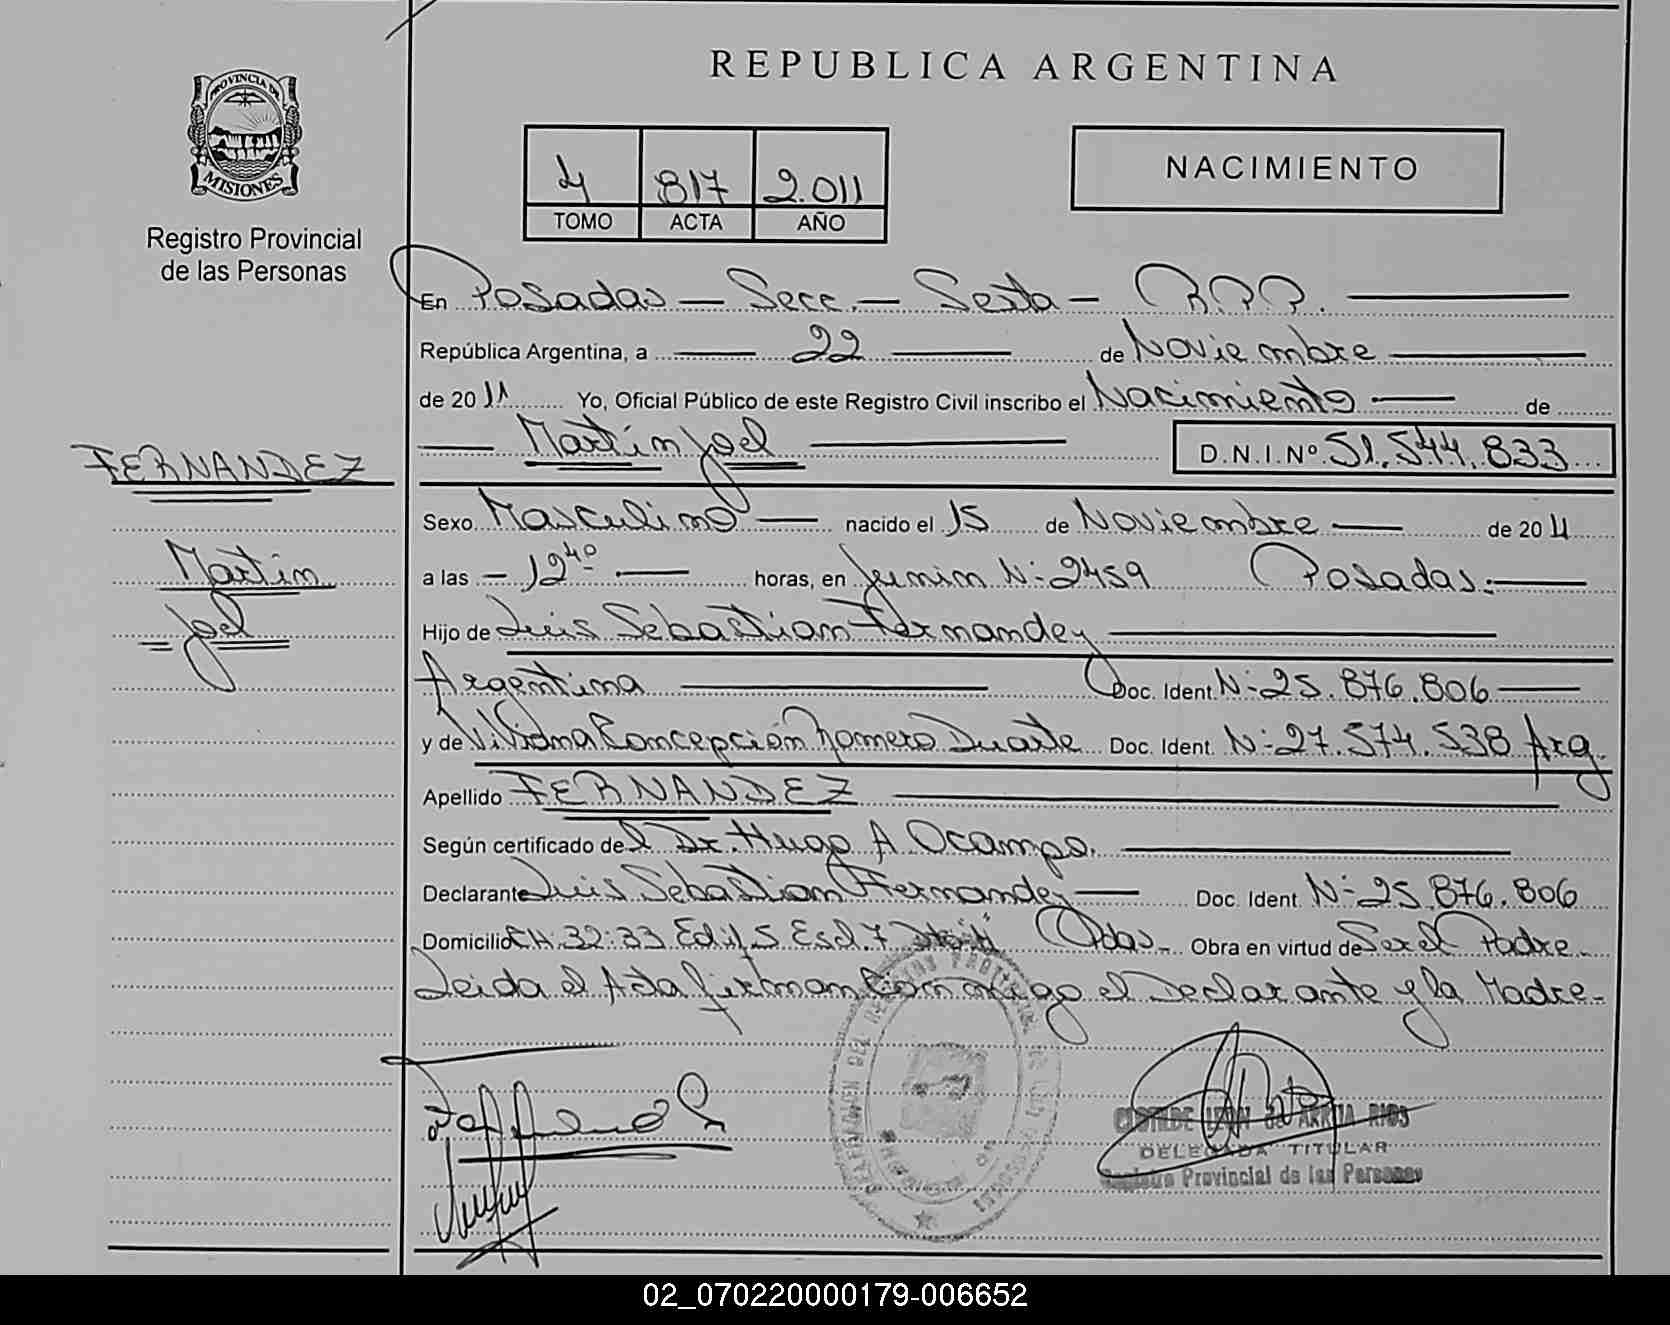 REPUBLICA ARGENTINA
PROVINCIA DE
MISIONES
Registro Provincial
de las Personas
4 817 2.011
TOMO ACTA AÑO
NACIMIENTO
En Posadas - Secc. - Sexta - R.P.P.
República Argentina, a 22 de Noviembre
de 2011 Yo, Oficial Público de este Registro Civil inscribo el Nacimiento de
Martin Joel D.N.I.Nº 51.544.833
FERNANDEZ
Martin
Joel
Sexo Masculino nacido el 15 de Noviembre de 2011
a las - 12 40 horas, en Junin Nº 2459 Posadas.
Hijo de Luis Sebastian Fernandez
Argentina Doc. Ident. Nº 25.876.806
y de Viviana Concepción Romero Duarte Doc. Ident. Nº 27.574.538 Arg.
Apellido FERNANDEZ
Según certificado del Dr. Hugo A Ocampo.
Declarante Luis Sebastian Fernandez Doc. Ident. Nº 25.876.806
Domicilio CH. 32-33 Edif. 5 Esd. 7 Pdas. Obra en virtud de Ser el Padre
Leida el Acta firman Conmigo el Declarante y la Madre-
CLOTILDE LEON de ARRUA RIOS
DELEGADA TITULAR
Registro Provincial de las Personas
02_070220000179-006652